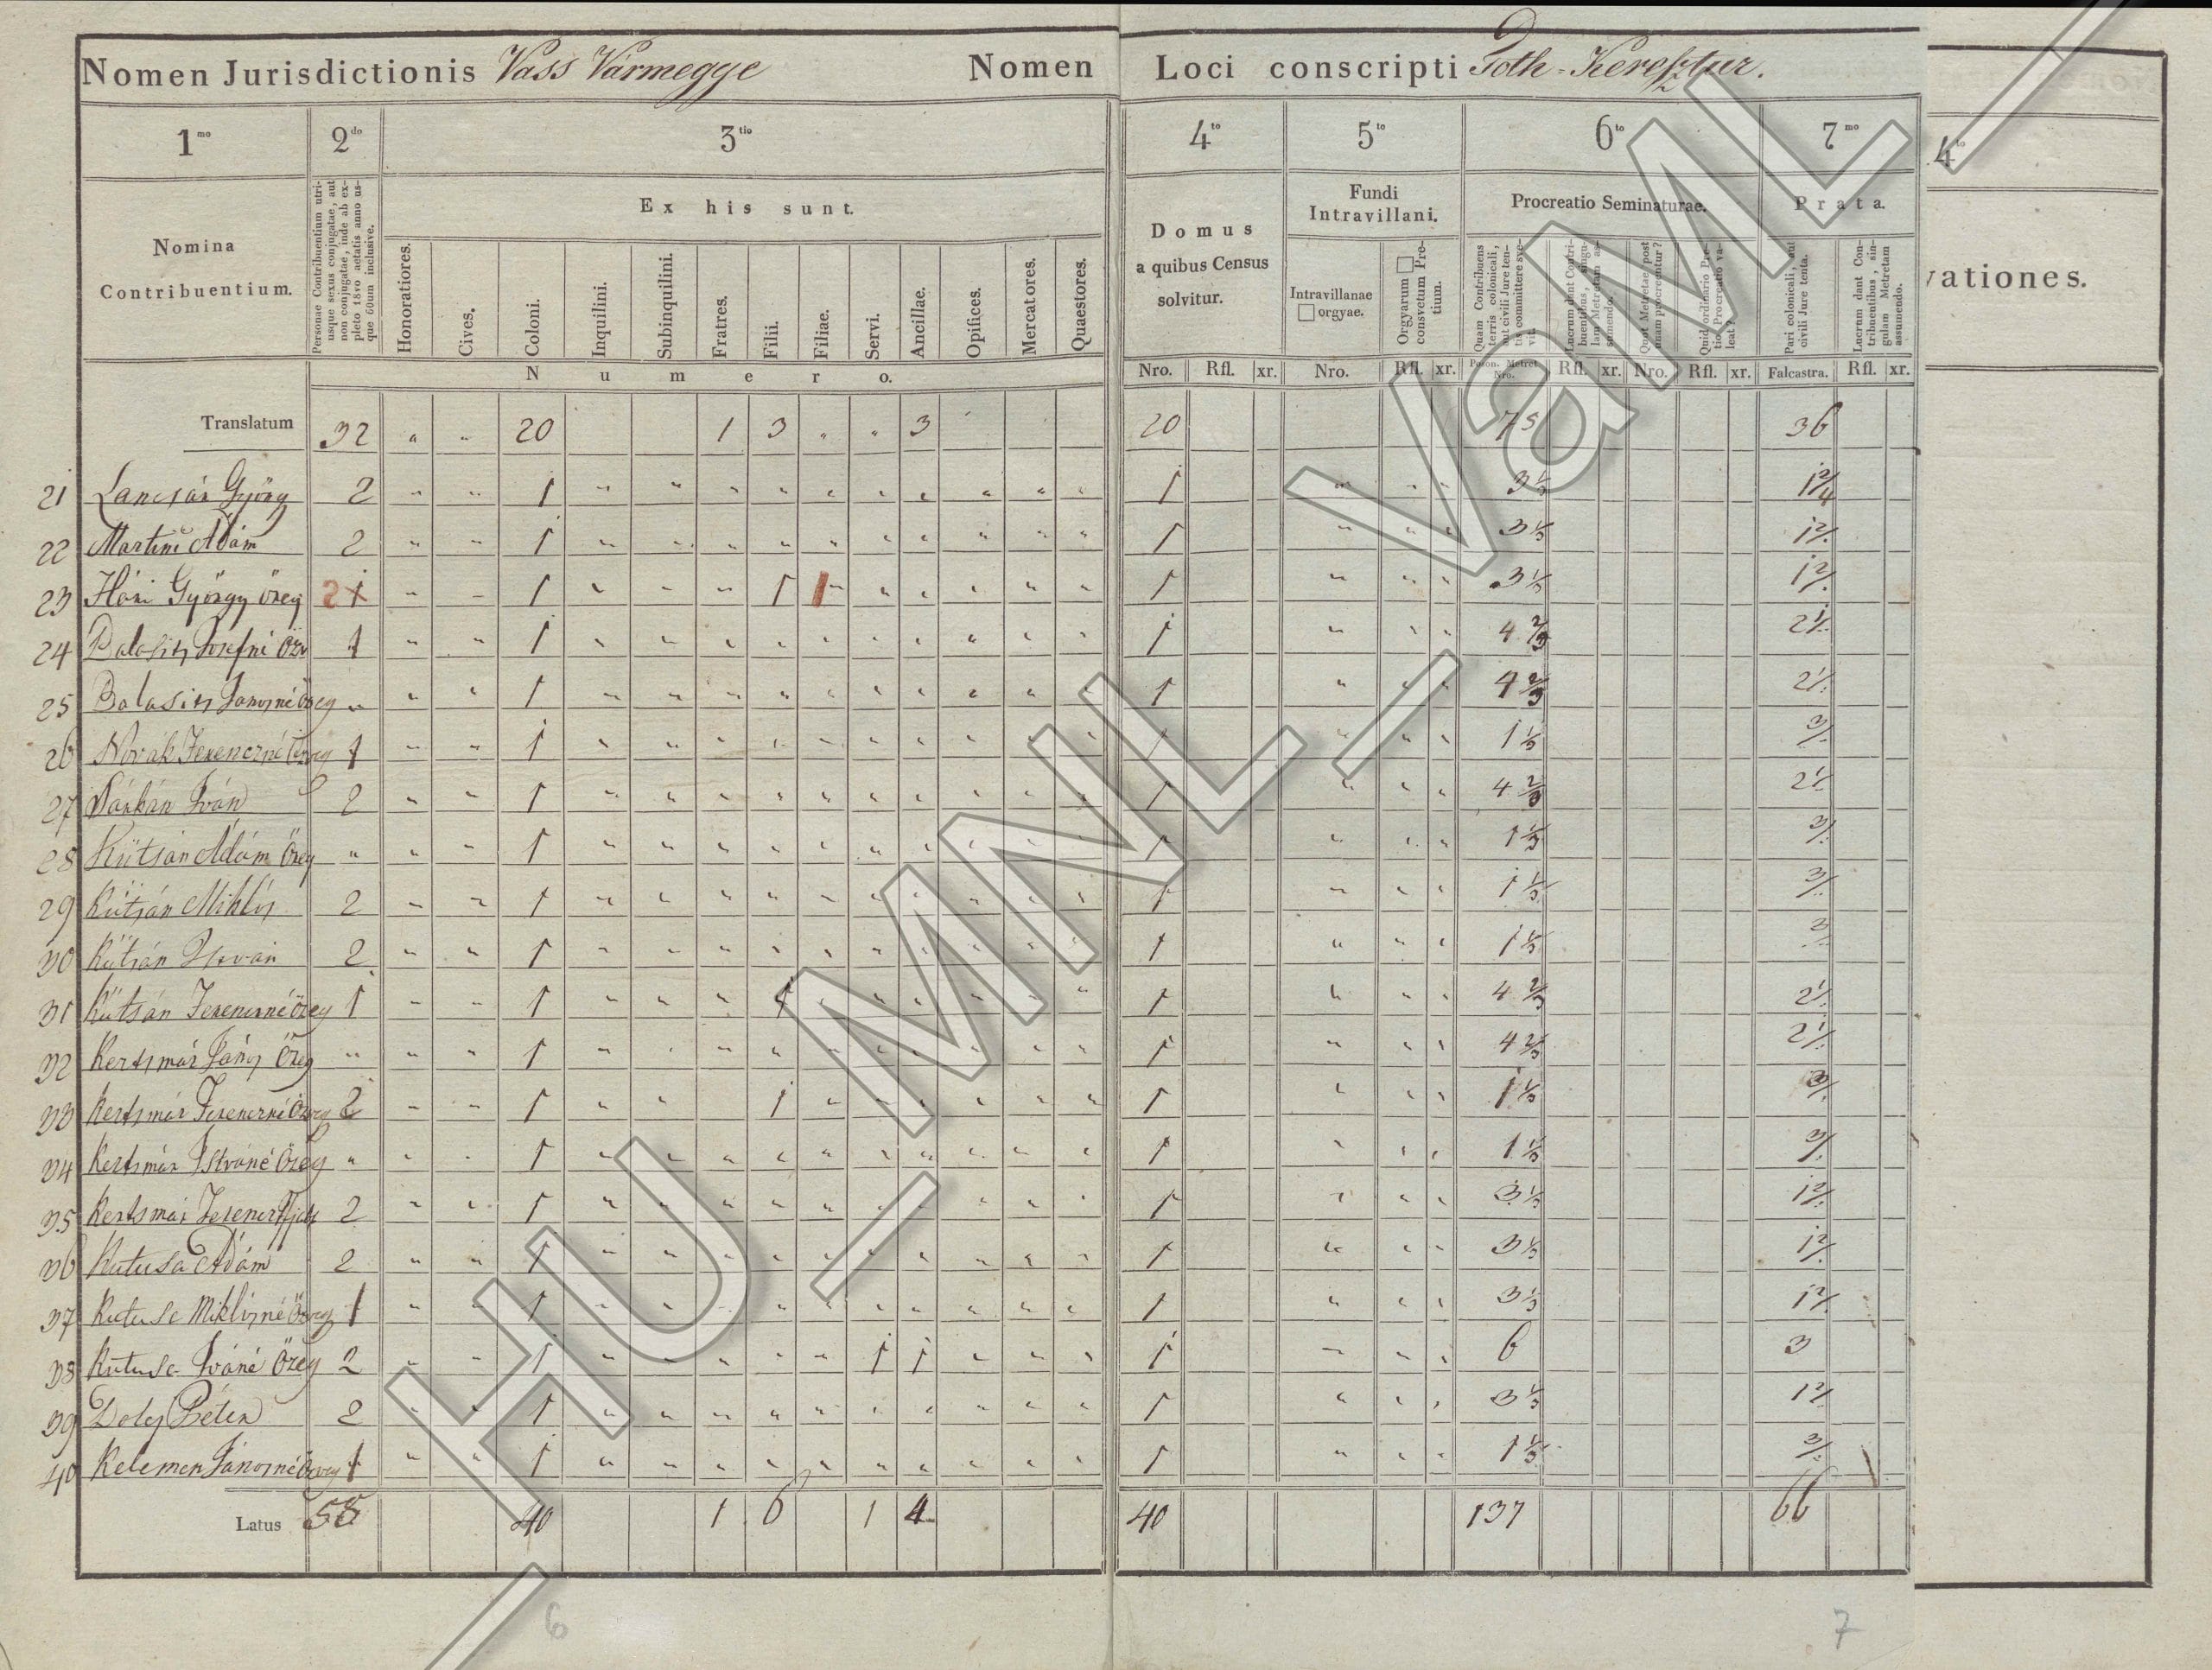 Nomen Jurisdictionis Vass Vármegye Nomen Loci conscripti Toth-Keresztur.
1mo 2do 3tio 4to 5to 6to 7mo 4to
Nomina Contribuentium.
Personae Contribuentium utriusque sexus conjugatae, aut non conjugatae, inde ab expleto 18vo aetatis anno usque 60um inclusive.
Ex his sunt.
Honoratiores. Cives. Coloni. Inquilini. Subinquilini. Fratres. Filii. Filiae. Servi. Ancillae. Opifices. Mercatores. Quaestores.
Domus a quibus Census solvitur.
Fundi Intravillani.
Intravillanae □ orgyae.
Orgyarum □ consvetum Pretium.
Procreatio Seminaturae.
Quam Contribuens terris colonicali, aut civili Jure tentis committere svevit.
Lucrum dant Contribuentibus, singulam Metretam assumendo.
Quot Metretae post unam procreentur?
Quid ordinario Pretio Procreatio valeat?
Prata.
Pari colonicali, aut civili Jure tenta.
Lucrum dant Contribuentibus, singulam Metretam assumendo.
vationes.
Numero. Nro. Rfl. xr. Nro. Rfl. xr. Poson. Metret Nro. Rfl. xr. Nro. Rfl. xr. Falcastra. Rfl. xr.
Translatum 32 " " 20 1 3 " " 3 20 75 36
21 Lancsár György 2 " " 1 " " " " " " " " " " 1 " " " 3 1/3 1 2/4
22 Martini Ádám 2 " " 1 " " " " " " " " " " 1 " " " 3 1/3 1 2/.
23 Hári György özveg 2 1 " " 1 " " " 1 1 " " " " " 1 " " " 3 1/3 1 2/.
24 Balasitz Josefné Özv 1 " " 1 " " " " " " " " " " 1 " " " 4 2/3 2 1/.
25 Balasits Janosné özveg " " " 1 " " " " " " " " " " 1 " " " 4 2/3 2 1/.
26 Novák Ferenczné özveg 1 " " 1 " " " " " " " " " " 1 " " " 1 1/3 3/.
27 Iván 2 " " 1 " " " " " " " " " " 1 " " " 4 2/3 2 1/.
28 Kütsán Ádám Özveg " " " 1 " " " " " " " " " " 1 " " " 1 1/3 3/.
29 Kütsán Miklós 2 " " 1 " " " " " " " " " " 1 " " " 1 1/3 3/.
30 Kütsán Istvan 2 " " 1 " " " " " " " " " " 1 " " " 1 1/3 3/.
31 Kütsán Ferenczné özveg 1 " " 1 " " " 1 " " " " " " 1 " " " 4 2/3 2 1/.
32 Kertsmár János Özveg " " " 1 " " " " " " " " " " 1 " " " 4 2/3 2 1/.
33 Kertsmár Ferenczné Özveg 2 " " 1 " " 1 " " " " " " 1 " " " 1 1/3 3/.
34 Kertsmár Istváné Özveg " " " 1 " " " " " " " " " " 1 " " " 1 1/3 3/.
35 Kertsmár Ferencz Ifjabb 2 " " 1 " " " " " " " " " " 1 " " " 3 1/3 1 2/.
36 Kutusa Ádám 2 " " 1 " " " " " " " " " " 1 " " " 3 1/3 1 2/.
37 Kutusa Miklósné Özveg 1 " " 1 " " " " " " " " " " 1 " " " 3 1/3 1 2/.
38 Kutusa Iváné Özveg 2 " " 1 " " " " " 1 1 " " " 1 " " " 6 3
39 Péter 2 " " 1 " " " " " " " " " " 1 " " " 3 1/3 1 2/.
40 Kelemen Jánosné Özveg 1 " " 1 " " " " " " " " " " 1 " " " 1 1/3 3/.
Latus 58 40 1 6 1 4 40 137 66
6 7
HU_MNL_VaML_